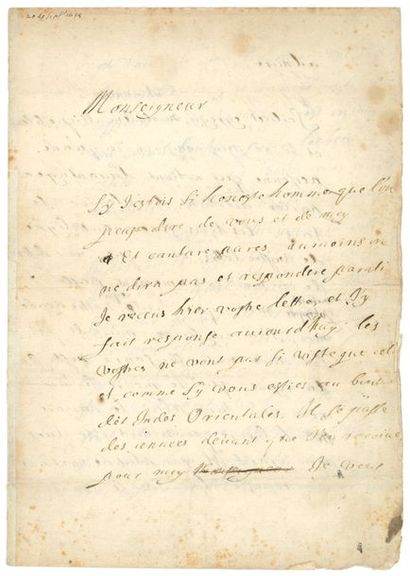 Monseigneur
Sy J'estois si honeste homme que l'on
peut dire de vous et de moy
Et cantare pares, au moins on
ne dira pas et respondere parati
Je receus hier vostre lettre et J'y
fait response aujourd'huy, les
vostres ne vont pas si viste que cela
et comme sy vous estiés au bout
des Indes Orientales, Il se passe
des années devant que J'en reçoive
pour moy Je vous